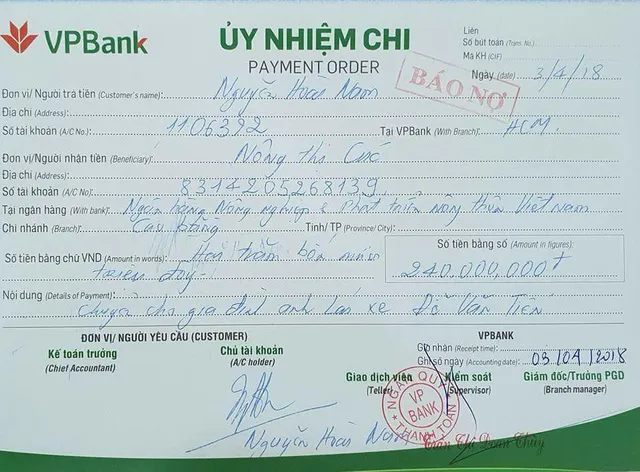 VPBank
ỦY NHIỆM CHI
PAYMENT ORDER
Liên
Số bút toán (Trans. No.)
Mã KH (CIF)
Ngày (date) 3/4/18
BÁO NỢ
Đơn vị/ Người trả tiền (Customer's name): Nguyễn Hoài Nam
Địa chỉ (Address):
Số tài khoản (A/C No.): 1106392 Tại VPBank (With Branch): HCM
Đơn vị/Người nhận tiền (Beneficiary): Nông thị Cúc
Địa chỉ (Address):
Số tài khoản (A/C No): 8314205268139
Tại ngân hàng (With bank): Ngân hàng Nông nghiệp & Phát triển nông thôn Việt Nam
Chi nhánh (Branch): Cao bằng Tỉnh/ TP (Province/ City):
Số tiền bằng chữ VND (Amount in words): Hai trăm bốn mươi
triệu đ
Số tiền bằng số (Amount in figures):
240,000,000đ
Nội dung (Details of Payment): Chuyển cho gia đình anh Lái xe Đỗ Văn Tiến
ĐƠN VỊ/ NGƯỜI YÊU CẦU (CUSTOMER)
VPBANK
Giờ nhận (Receipt time):
Ghi sổ ngày (Accounting date): 03/04/2018
Kế toán trưởng
(Chief Accountant)
Chủ tài khoản
(A/C holder)
Giao dịch viên
(Teller)
Kiểm soát
(Supervisor)
Giám đốc/Trưởng PGD
(Branch manager)
NGÂN QUỸ
VP
BANK
THANH TOÁN
Nguyễn Hoài Nam